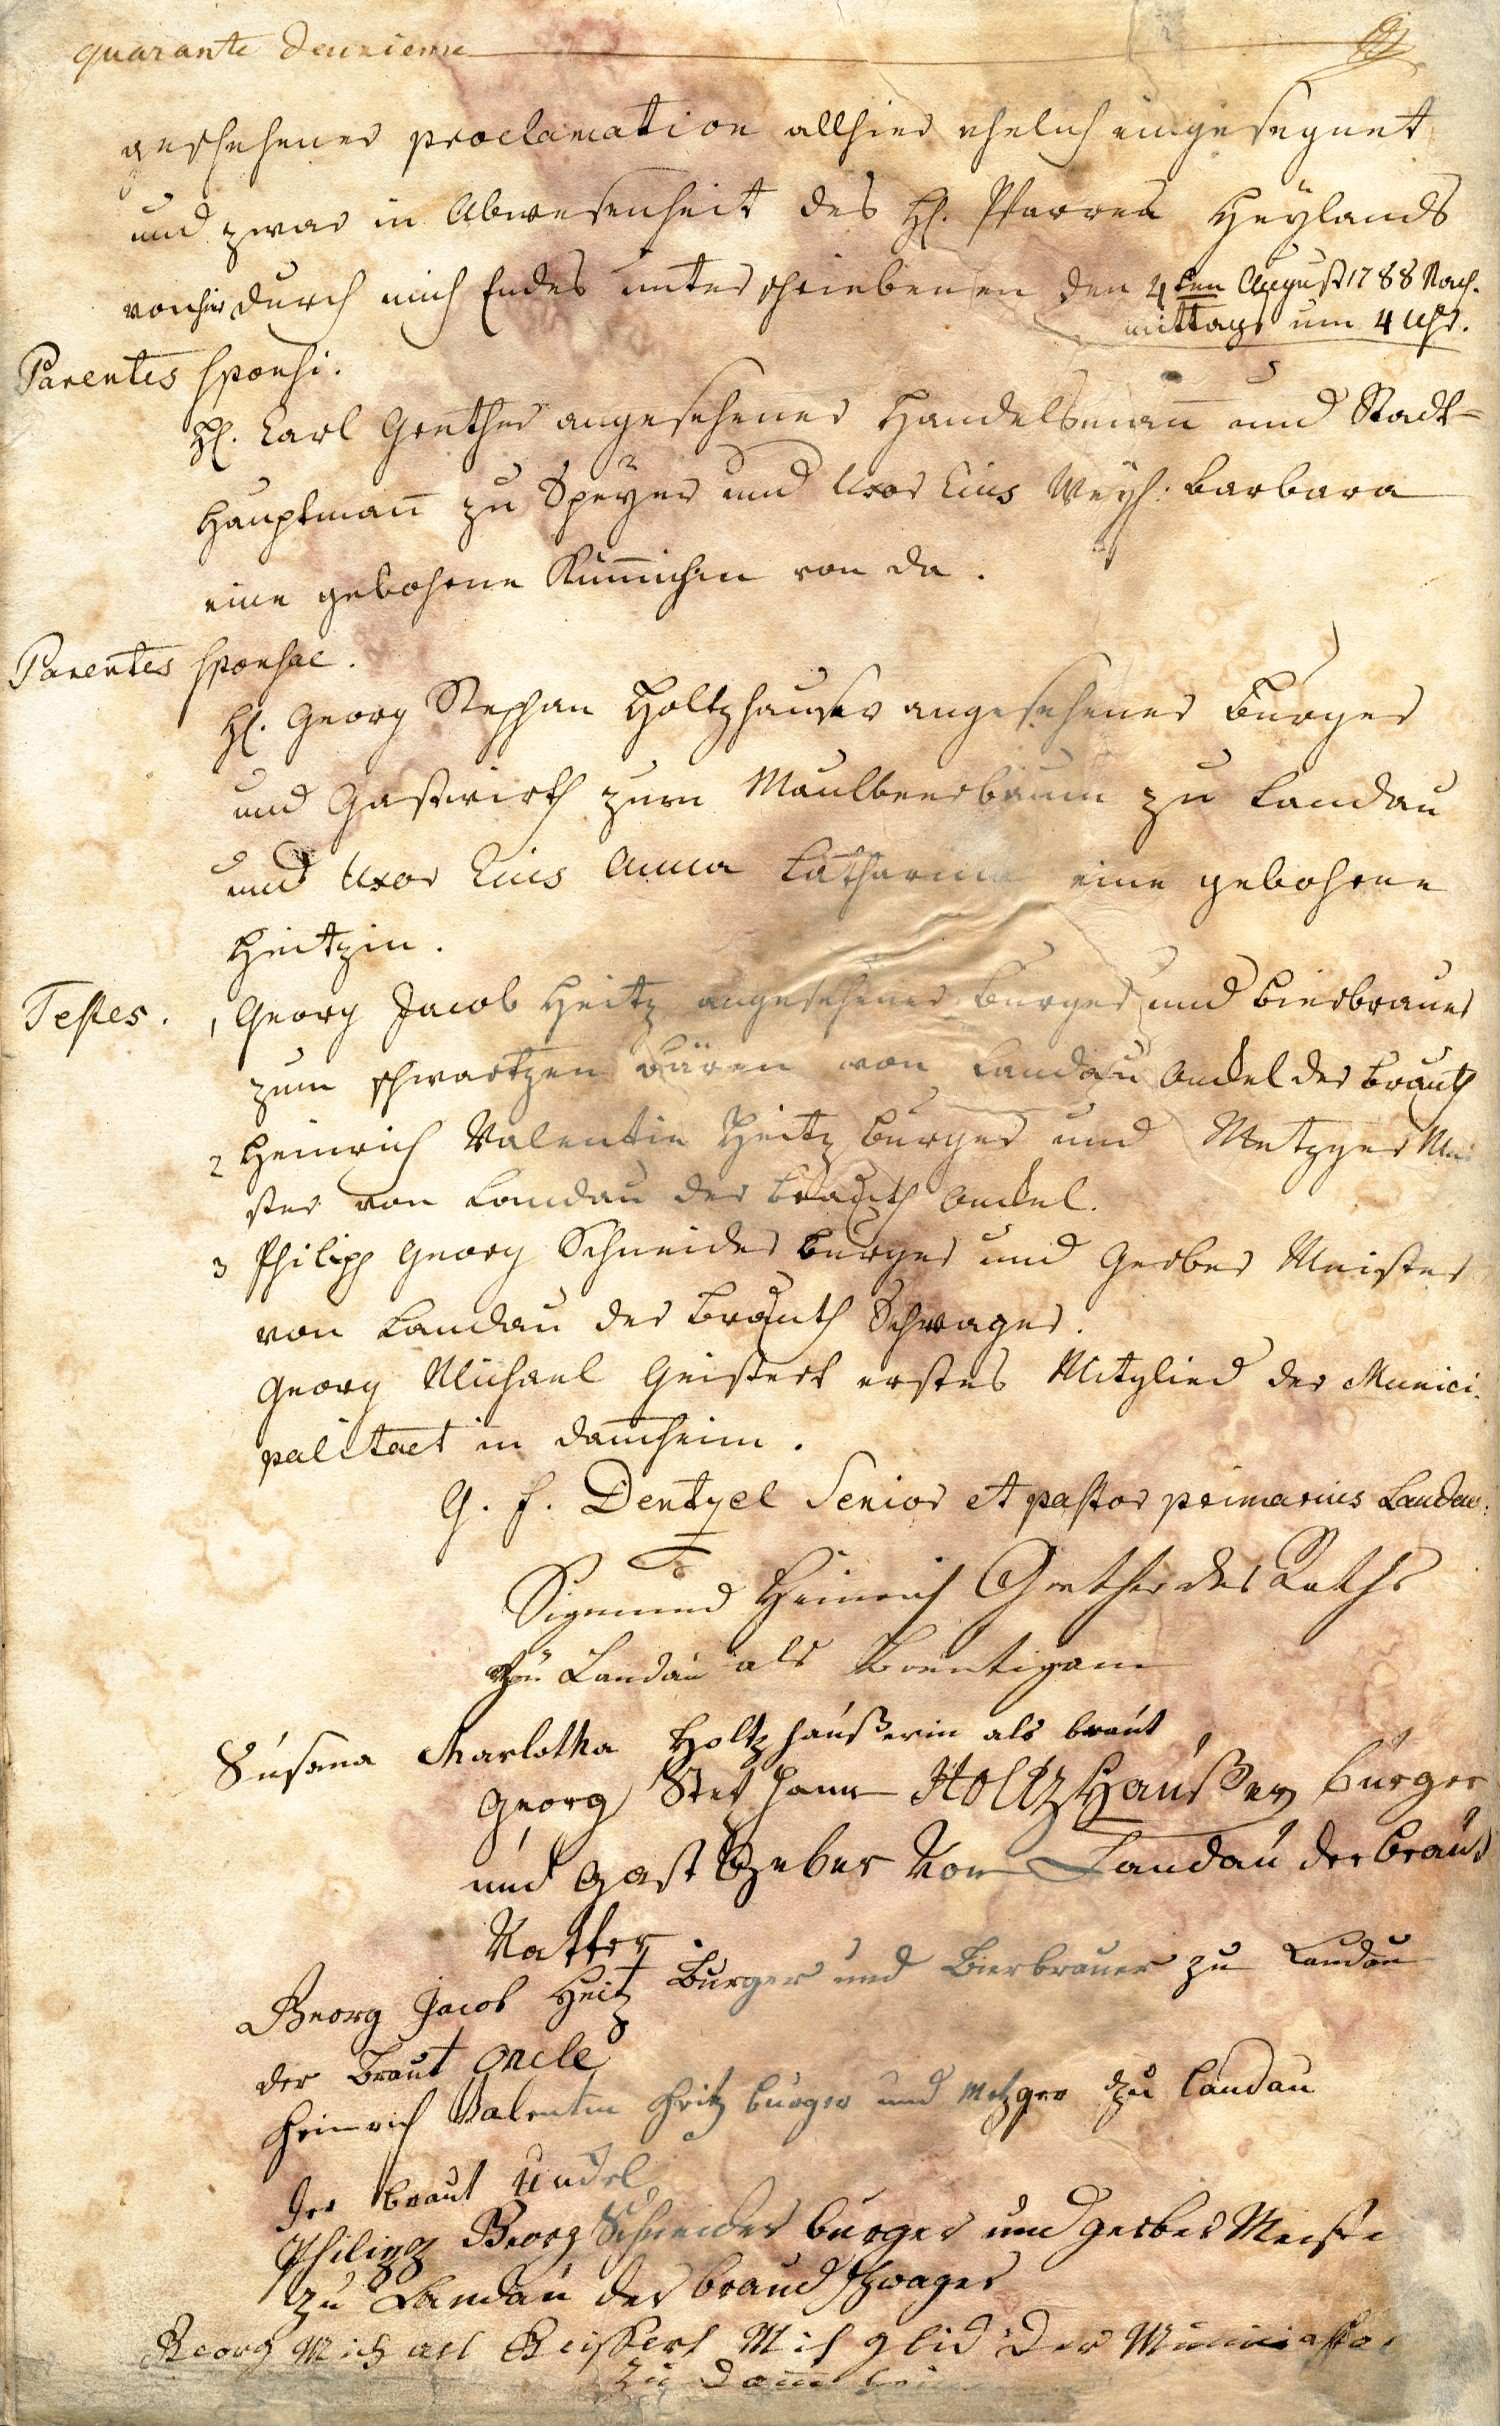 quarante deuxieme
geschehener proclamation allhier ehelich eingesegnet
und zwar in Abwesenheit des H. Pfarrer Heÿlands
von hier durch mich Endes unterschriebenen den 4ten August 1788 Nach-
mittags um 4 Uhr.
Parentes Sponsi.
H. Carl Goether angesehener Handelsman̄ und Stadt-
Hauptman̄ zu Speÿer und Uxor Eius Weyl: Barbara
eine gebohrne Kum̄ichin von da.
Parentes Sponsae.
H. Georg Stephan Holtzhauser angesehener Burger
und Gastwirth zum Maulbeerbaum zu Landau
und Uxor Eius Anna Catharina eine gebohrne
Heitzin.
Testes. 1, Georg Jacob Heitz angesehener Burger und Bierbrauer
zum schwartzen Bären von Landau Onckel der Brauth
2 Heinrich Valentin Heitz Burger und Metzger Mei
ster von Landau der Brauth Onckel.
3 Philipp Georg Schneider Burger und Gerber Meister
von Landau der Brauth Schwager.
Georg Michael Geissert erstes Mitglied der Munici-
palitaet in Dam̄heim.
G. F. Dentzel Senior et pastor primarius Landav:
Sigmund Heinrich Goether des Raths
zu Landau als Breutigam
Susana Charlotha Holtzhäußerin als braut
Georg Stephann Holtzhaußer burger
und gast Geber Von Landau der braut
Vatter.
Georg Jacob Heitz Burger und Bierbrauer zu Landau
der Braut Oncle
Heinrich Valentin Heitz burger und Metzger zu Landau
der braut Unckel
Philipp Georg Schneider burger und gerber Meister
zu Landau der braud schwager
Georg Michael Geissert Mitglid der
zu Dam̄heim